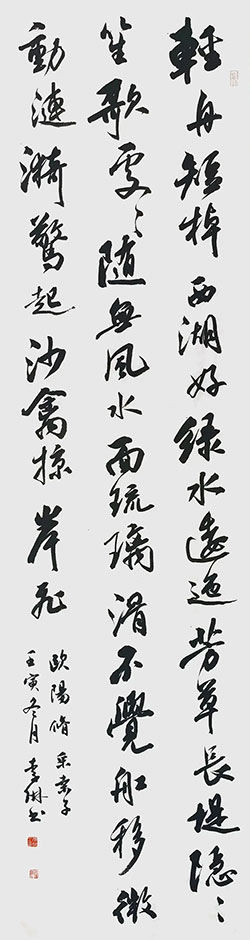 輕舟短棹西湖好綠水逶迤芳草長堤隱〻
笙歌處〻隨無風水面琉璃滑不覺船移微
動漣漪驚起沙禽掠岸飛
歐陽脩采桑子
壬寅冬月李